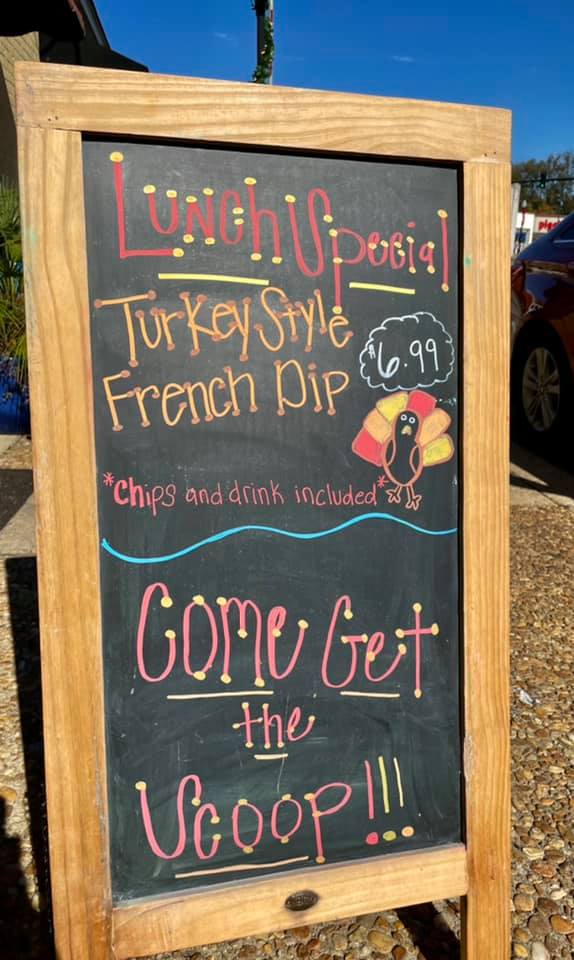 Lunch Special
Turkey Style
$6.99
French Dip
*chips and drink included*
Come Get
the
Scoop!!!